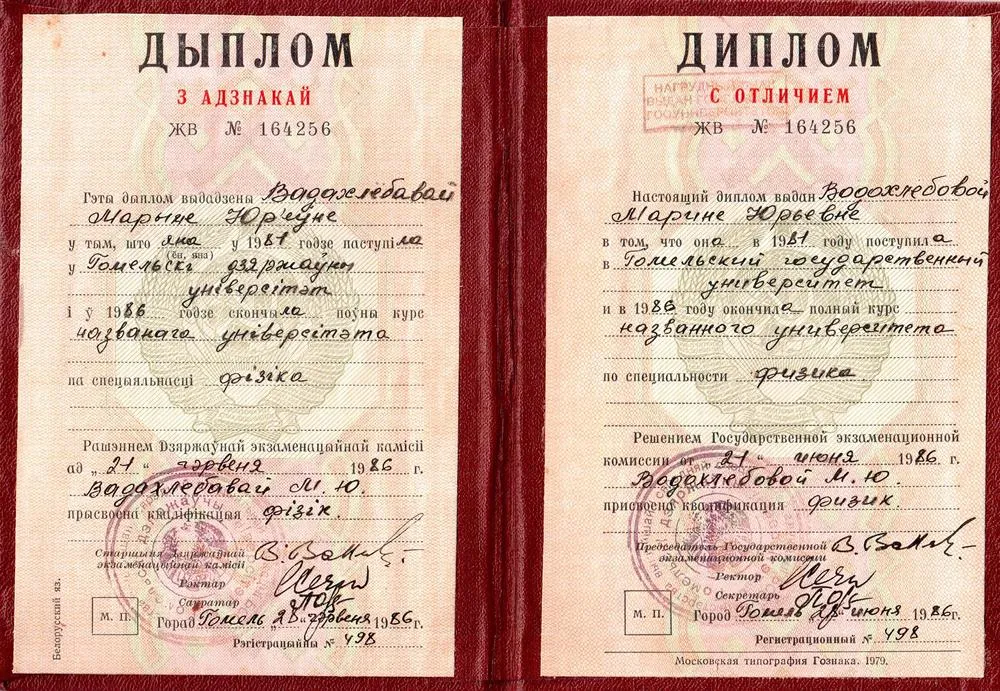 ДЫПЛОМ
З АДЗНАКАЙ
ЖВ № 164256
Гэты дыплом выдадзены Вадахлебавай
Марыне Юр'еўне
у тым, што яна у 1981 годзе паступіла
(ён, яна)
у Гомельскі дзяржаўны
універсітэт
і ў 1986 годзе скончыла поўны курс
названага універсітэта
па спецыяльнасці фізіка
Рашэннем Дзяржаўнай экзаменацыйнай камісіі
ад „21“ чэрвеня 1986 г.
Вадахлебавай М. Ю.
прысвоена кваліфікацыя фізік.
Старшыня Дзяржаўнай
экзаменацыйнай камісіі
Рэктар
Сакратар
М. П.
Горад Гомель „28“ чэрвеня 1986 г.
Рэгістрацыйны № 498
Белорусский яз.
ДИПЛОМ
С ОТЛИЧИЕМ
ЖВ № 164256
Настоящий диплом выдан Водохлебовой
Марине Юрьевне
в том, что она в 1981 году поступила
в Гомельский государственный
университет
и в 1986 году окончила полный курс
названного университета
по специальности физика
Решением Государственной экзаменационной
комиссии от „21“ июня 1986 г.
Водохлебовой М. Ю.
присвоена квалификация физик.
Председатель Государственной
экзаменационной комиссии
Ректор
Секретарь
М. П.
Город Гомель „28“ июня 1986 г.
Регистрационный № 498
Московская типография Гознака. 1979.